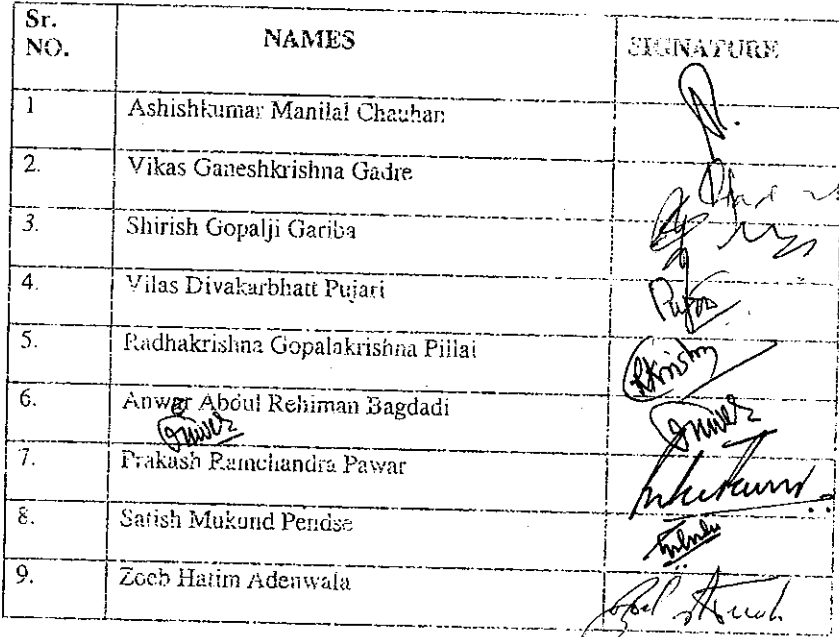 Sr. NO. NAMES SIGNATURE
1 Ashishkumar Manilal Chauhan
2. Vikas Ganeshkrishna Gadre
3. Shirish Gopalji Gariba
4. Vilas Divakarbhatt Pujari
5. Radhakrishna Gopalakrishna Pillai
6. Anwar Abdul Rehiman Bagdadi
7. Prakash Ramchandra Pawar
8. Satish Mukund Pendse
9. Zoeb Hatim Adenwala